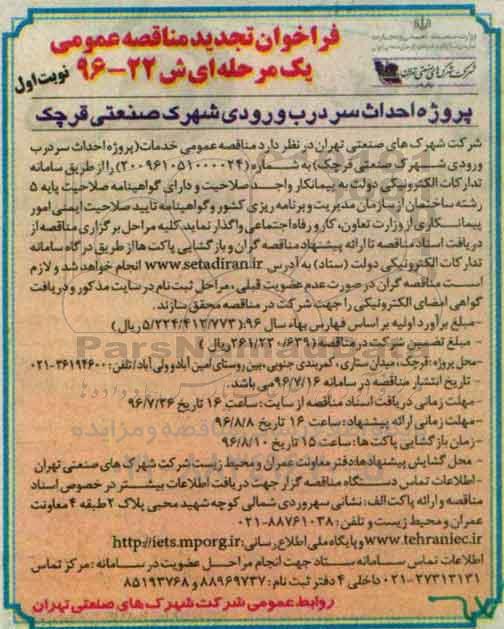 فراخوان تجدید مناقصه عمومی
یک مرحله ای ش ۲۲-۹۶
نوبت اول
شرکت شهرک های صنعتی تهران
پروژه احداث سر درب ورودی شهرک صنعتی قرچک
شرکت شهرک های صنعتی تهران در نظر دارد مناقصه عمومی خدمات (پروژه احداث سر درب
ورودی شهرک صنعتی قرچک) به شماره (۲۰۰۹۶۱۰۵۱۰۰۰۰۲۴) را از طریق سامانه
تدارکات الکترونیکی دولت به پیمانکار واجد صلاحیت و دارای گواهینامه صلاحیت پایه ۵
رشته ساختمان از سازمان مدیریت و برنامه ریزی کشور و گواهینامه تایید صلاحیت ایمنی امور
پیمانکاری از وزارت تعاون، کار و رفاه اجتماعی واگذار نماید. کلیه مراحل برگزاری مناقصه از
دریافت اسناد مناقصه تا ارائه پیشنهاد مناقصه گران و بازگشایی پاکت ها از طریق درگاه سامانه
تدارکات الکترونیکی دولت (ستاد) به آدرس www.setadiran.ir انجام خواهد شد و لازم
است مناقصه گران در صورت عدم عضویت قبلی، مراحل ثبت نام در سایت مذکور و دریافت
گواهی امضای الکترونیکی را جهت شرکت در مناقصه محقق سازند.
-مبلغ برآورد اولیه بر اساس فهارس بهاء سال ۹۶: (۵/۲۲۴/۴۱۲/۷۷۳ ریال)
- مبلغ تضمین شرکت در مناقصه: (۲۶۱/۲۲۰/۶۳۹ ریال)
-محل پروژه: قرچک، میدان ستاری، کمربندی جنوبی، بین روستای امین آباد و ولی آباد / تلفن: ۳۶۱۹۴۶۰۰-۰۲۱
- تاریخ انتشار مناقصه در سامانه ۹۶/۷/۱۶ می باشد.
-مهلت زمانی دریافت اسناد مناقصه از سایت: ساعت ۱۶ تاریخ ۹۶/۷/۲۶
-مهلت زمانی ارائه پیشنهاد: ساعت ۱۶ تاریخ ۹۶/۸/۸
-زمان بازگشایی پاکت ها: ساعت ۱۵ تاریخ ۹۶/۸/۱۰
- محل گشایش پیشنهادها: دفتر معاونت عمران و محیط زیست شرکت شهرک های صنعتی تهران
-اطلاعات تماس دستگاه مناقصه گزار جهت دریافت اطلاعات بیشتر در خصوص اسناد
مناقصه و ارائه پاکت الف: نشانی سهروردی شمالی کوچه شهید محبی پلاک ۲ طبقه ۴ معاونت
عمران و محیط زیست و تلفن: ۸۸۷۶۱۰۳۸-۰۲۱
www.tehraniec.ir و پایگاه ملی اطلاع رسانی: http://iets.mporg.ir
اطلاعات تماس سامانه ستاد جهت انجام مراحل عضویت در سامانه: مرکز تماس
۲۷۳۱۳۱۳۱-۰۲۱ داخلی ۴ دفتر ثبت نام: ۸۸۹۶۹۷۳۷ و ۸۵۱۹۳۷۶۸
روابط عمومی شرکت شهرک های صنعتی تهران
ParsNamadData